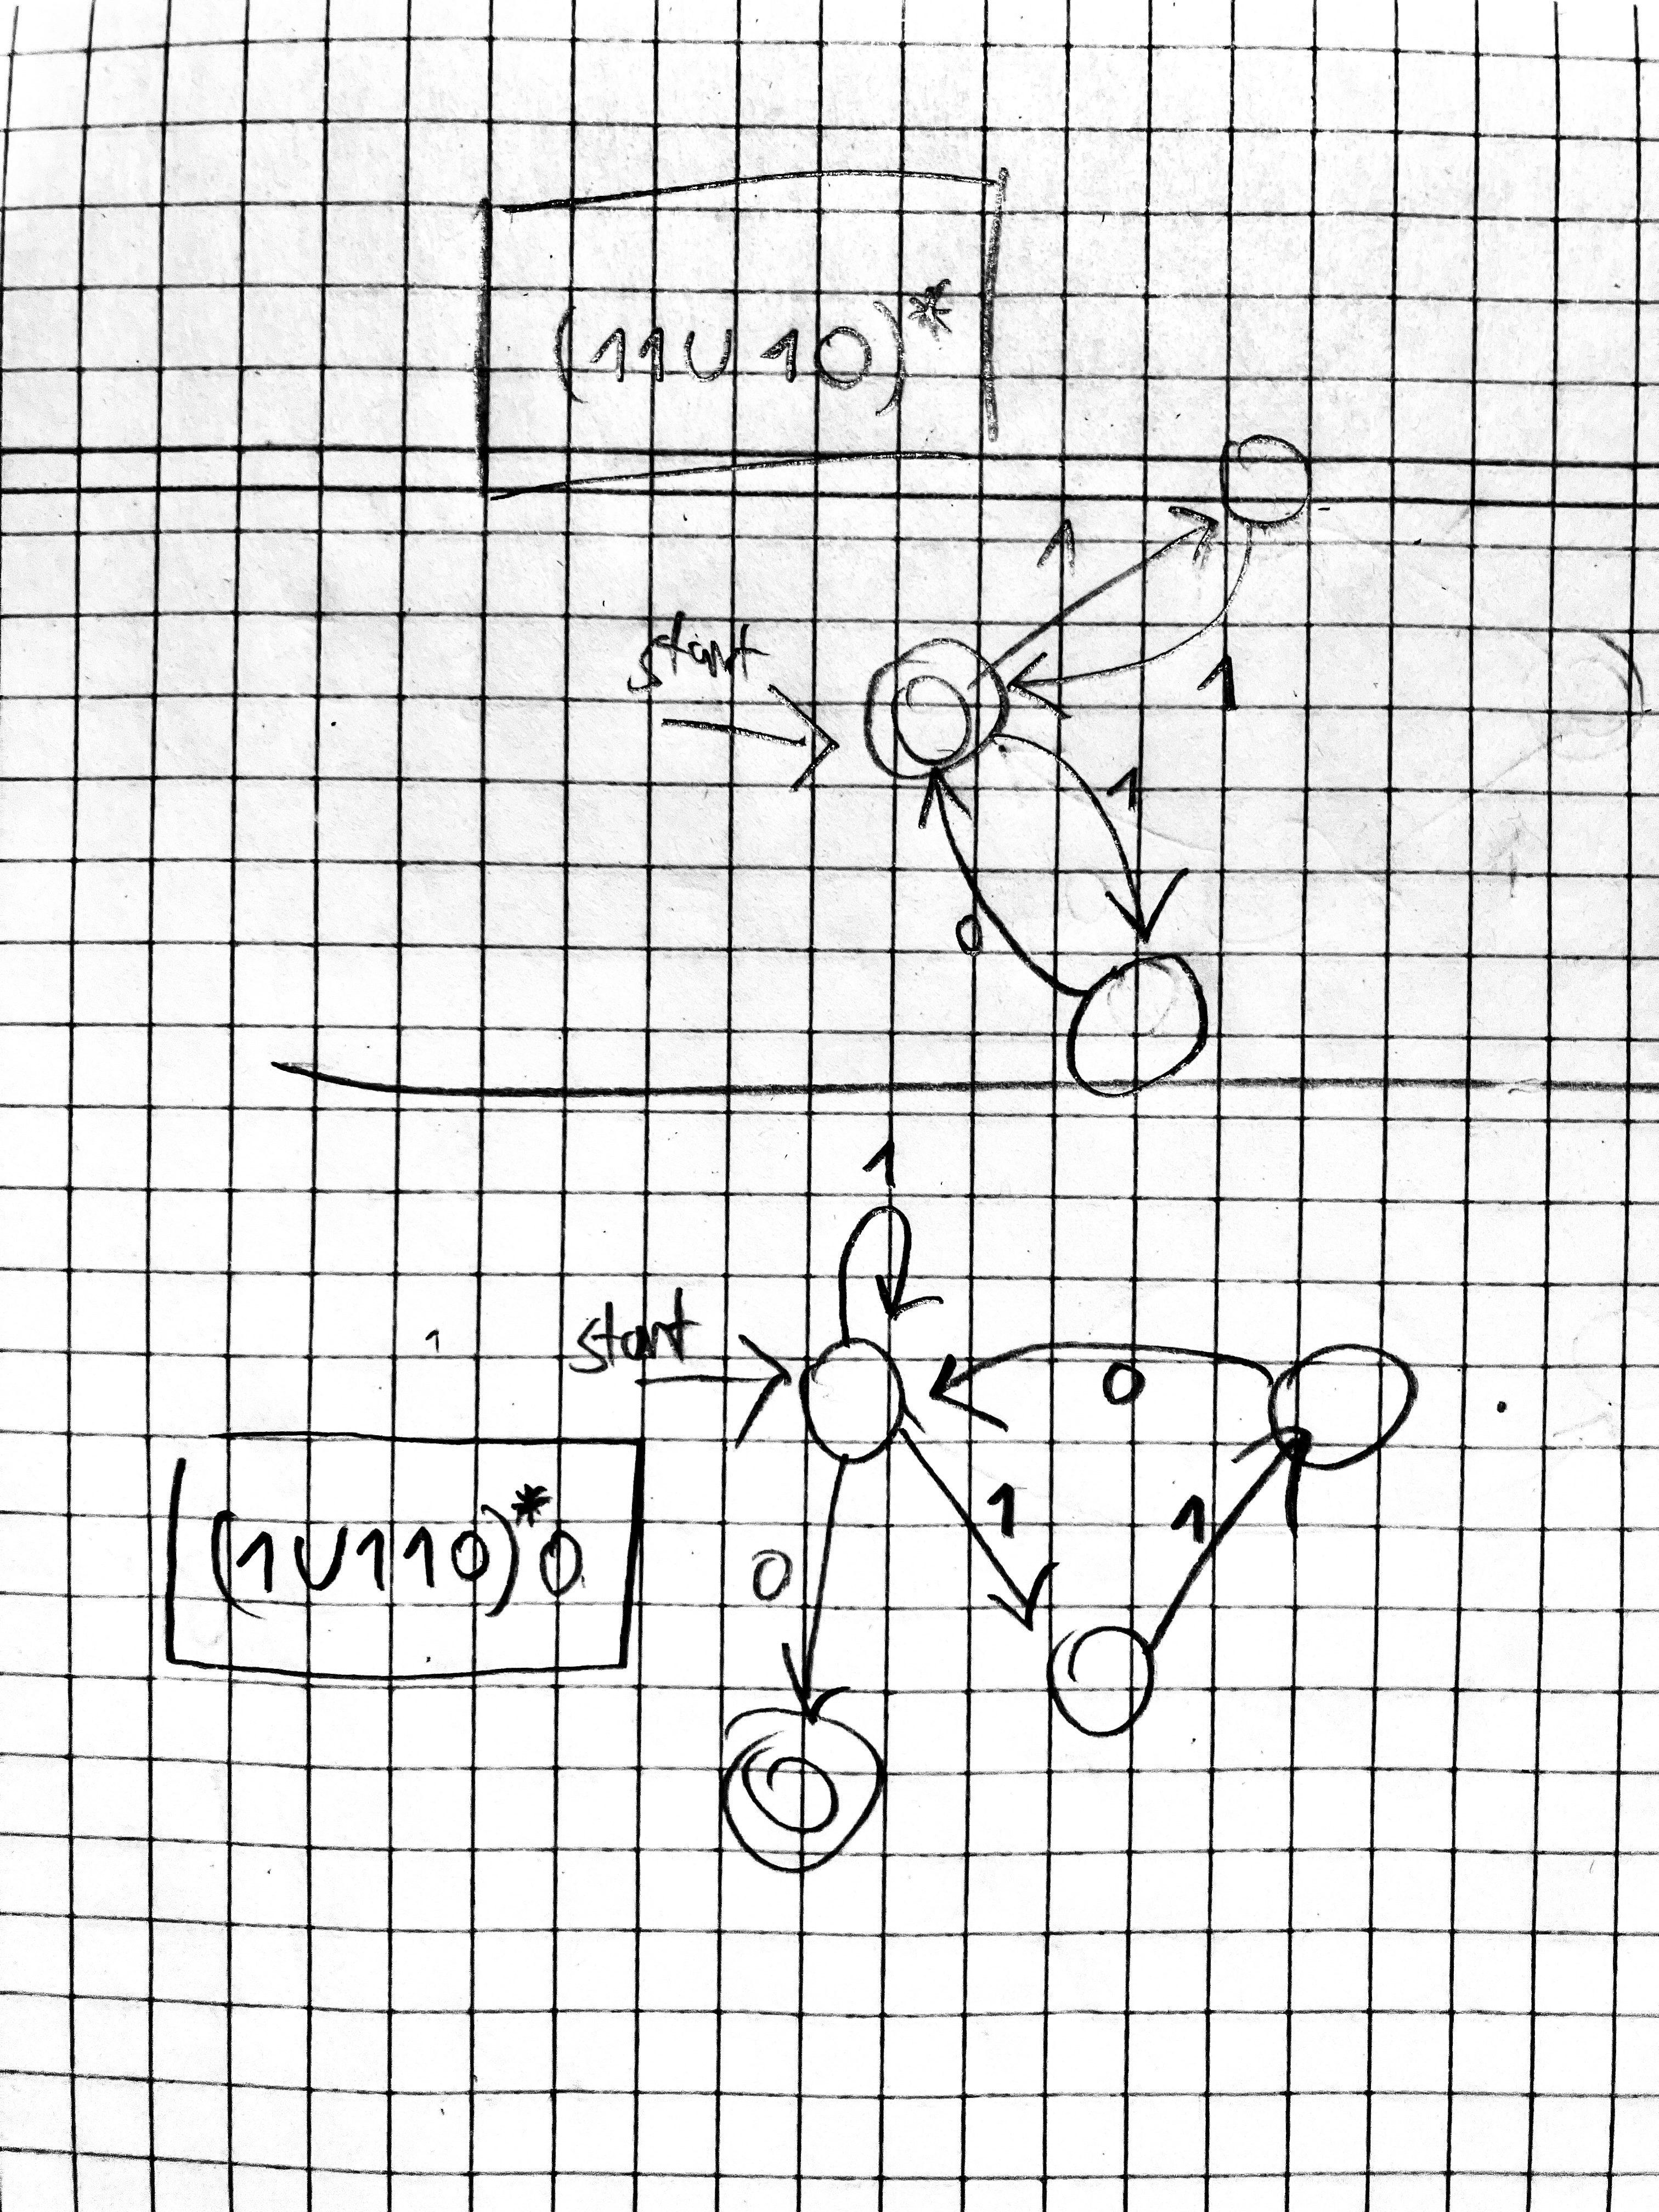 (11∪10)*
1
start
1
1
0
1
start
0
(1∪110)*0
0
1
1